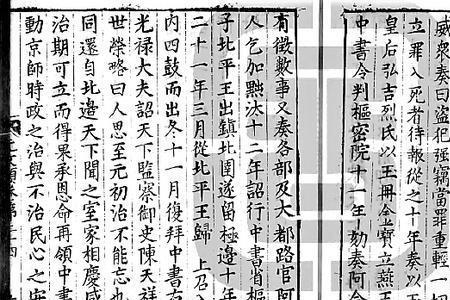 威衆奏曰盜犯强竊當罪重輕一切
立罪入死者待報從之十年奏以王
皇后弘吉烈氏以玉冊金寶立燕王
中書令判樞密院十一年劾奏阿合
有徵數事又奏各部及大都路官阿
人乞加黜汰十二年詔行中書省樞
子北平王出鎮北圉遂留極邊十年
二十一年三月從北平王歸 上召入
内四鼓而出冬十一月復拜中書右
光禄大夫詔天下監察御史陳天祥
世榮略曰人思至元初治不能忘也
同還自北邊天下聞之室家相慶咸
治期可立而得果承恩命再領中書
動京師時政之治與不治民心之安